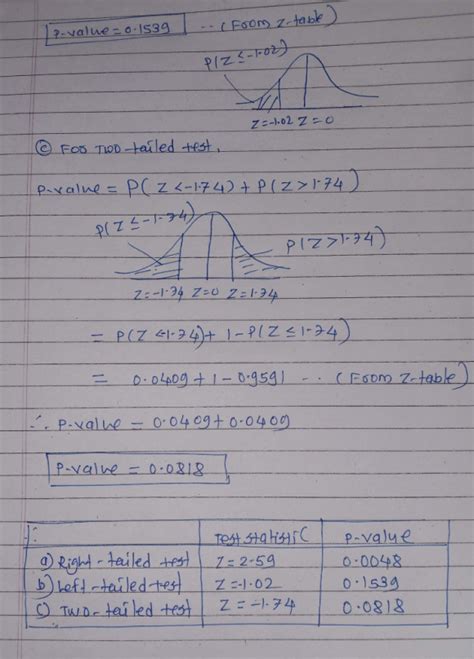 P-value = 0.1539 ... (From Z-table)
P(Z ≤ -1.02)
Z=-1.02 Z=0
(c) For Two-tailed test,
P-value = P(Z < -1.74) + P(Z > 1.74)
P(Z ≤ -1.74)
P(Z > 1.74)
Z=-1.74 Z=0 Z=1.74
= P(Z < 1.74) + 1 - P(Z ≤ 1.74)
= 0.0409 + 1 - 0.9591 ... (From Z-table)
∴ P-value = 0.0409 + 0.0409
P-value = 0.0818
Test statistic P-value
a) Right-tailed test Z = 2.59 0.0048
b) Left-tailed test Z = -1.02 0.1539
c) Two-tailed test Z = -1.74 0.0818